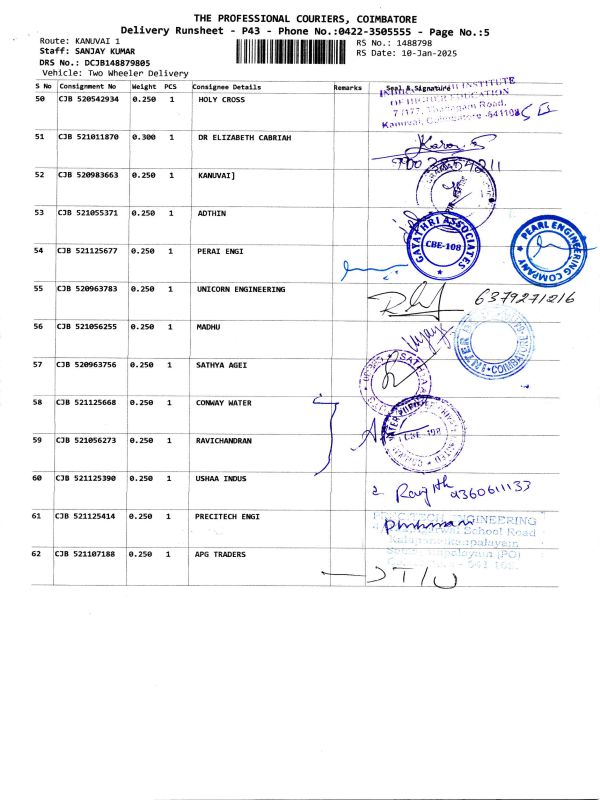 THE PROFESSIONAL COURIERS, COIMBATORE
Delivery Runsheet - P43 - Phone No.:0422-3505555 - Page No.:5
Route: KANUVAI 1
Staff: SANJAY KUMAR
DRS No.: DCJB148879805
Vehicle: Two Wheeler Delivery
RS No.: 1488798
RS Date: 10-Jan-2025
S No Consignment No Weight PCS Consignee Details Remarks Seal & Signature
50 CJB 520542934 0.250 1 HOLY CROSS
INSTITUTE
OF HIGHER EDUCATION
7/177, Road,
Kanuvai, Coimbatore -641108
51 CJB 521011870 0.300 1 DR ELIZABETH CABRIAH
52 CJB 520983663 0.250 1 KANUVAI]
53 CJB 521055371 0.250 1 ADTHIN
GAYATHRI ASSOCIATES
CBE-108
PEARL ENGINEERING COMPANY
54 CJB 521125677 0.250 1 PERAI ENGI
55 CJB 520963783 0.250 1 UNICORN ENGINEERING
6379271216
56 CJB 521056255 0.250 1 MADHU
57 CJB 520963756 0.250 1 SATHYA AGEI
SATHYA
58 CJB 521125668 0.250 1 CONWAY WATER
WATER
CBE-108
59 CJB 521056273 0.250 1 RAVICHANDRAN
60 CJB 521125390 0.250 1 USHAA INDUS
9360611133
61 CJB 521125414 0.250 1 PRECITECH ENGI
ENGINEERING
School Road
(PO)
62 CJB 521107188 0.250 1 APG TRADERS
T/U